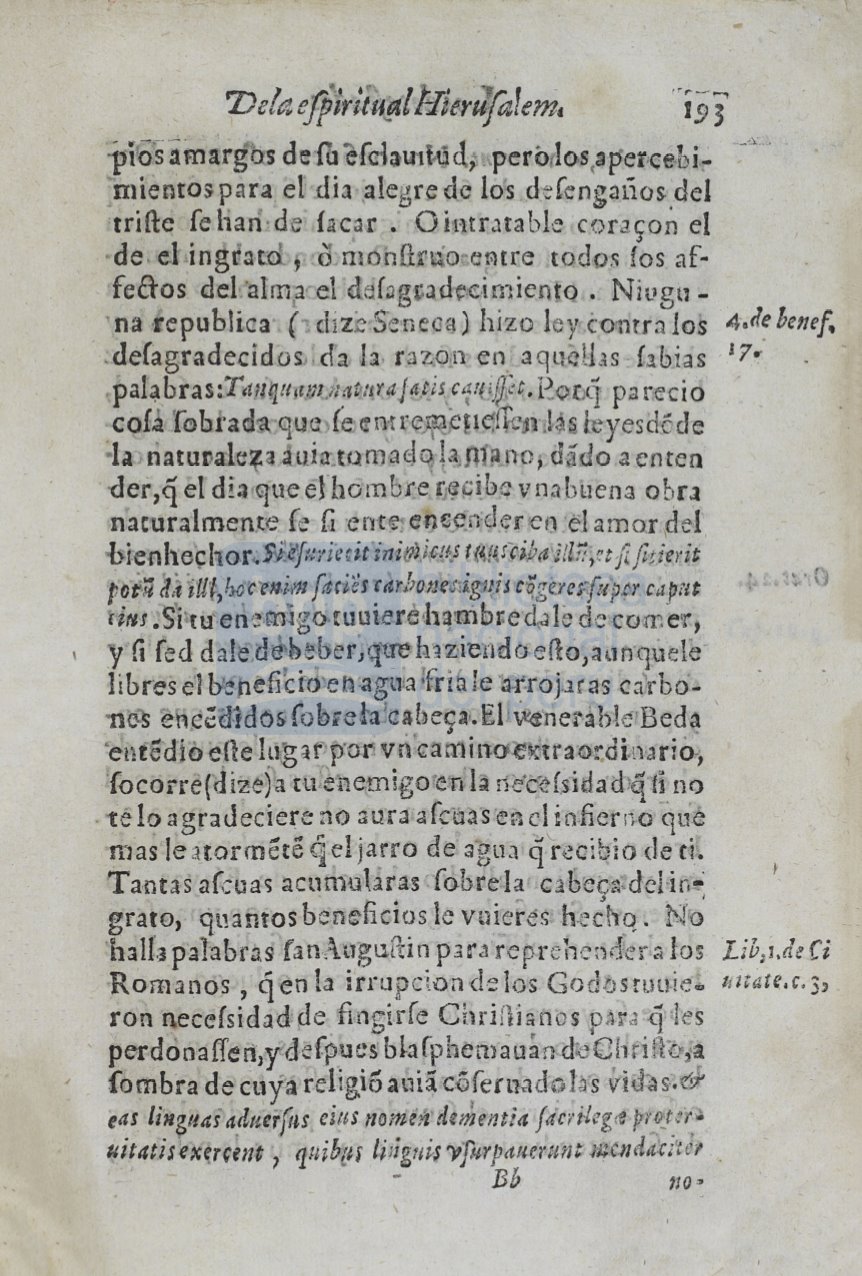 De la espiritual Hierusalem. 193
pios amargos de su esclauitud, pero los apercebi-
mientos para el dia alegre de los desengaños del
triste se han de sacar . O intratable coraçon el
de el ingrato , ò monstruo entre todos los af-
fectos del alma el desagradecimiento . Ningu -
na republica ( dize Seneca) hizo ley contra los
4. de benef.
desagradecidos da la razon en aquellas sabias
17.
palabras: Tanquam natura satis cauisset. Porq̃ parecio
cosa sobrada que se entremetiessen las leyes dõde
la naturaleza auia tomado la mano, dãdo a enten
der, q̃ el dia que el hombre recibe vna buena obra
naturalmente se si ente encender en el amor del
bienhechor. Si esurierit inimicus tuus ciba illũ, et si sitierit
potũ da illi, hoc enim faciẽs carbones ignis cõgeres super caput
eius. Si tu enemigo tuuiere hambre dale de comer,
y si sed dale de beber, que haziendo esto, aunque le
libres el beneficio en agua fria le arrojaras carbo-
nes encẽdidos sobre la cabeça. El venerable Beda
entẽdio este lugar por vn camino extraordinario,
socorre (dize) a tu enemigo en la necessidad q̃ si no
te lo agradeciere no aura ascuas en el infierno que
mas le atormẽtẽ q̃ el jarro de agua q̃ recibio de ti.
Tantas ascuas acumularas sobre la cabeça del in-
grato, quantos beneficios le vuieres hecho. No
halla palabras san Augustin para reprehender a los
Lib. 1. de Ci
Romanos , q̃ en la irrupcion de los Godos tuuie-
uitate. c. 3,
ron necessidad de fingirse Christianos para q̃ les
perdonassen, y despues blasphemauan de Christo, a
sombra de cuya religiõ auiã cõseruado las vidas. &
eas linguas aduersus eius nomen dementia sacrilegæ proter-
uitatis exercent , quibus linguis vsurpauerunt mendaciter
Bb no-